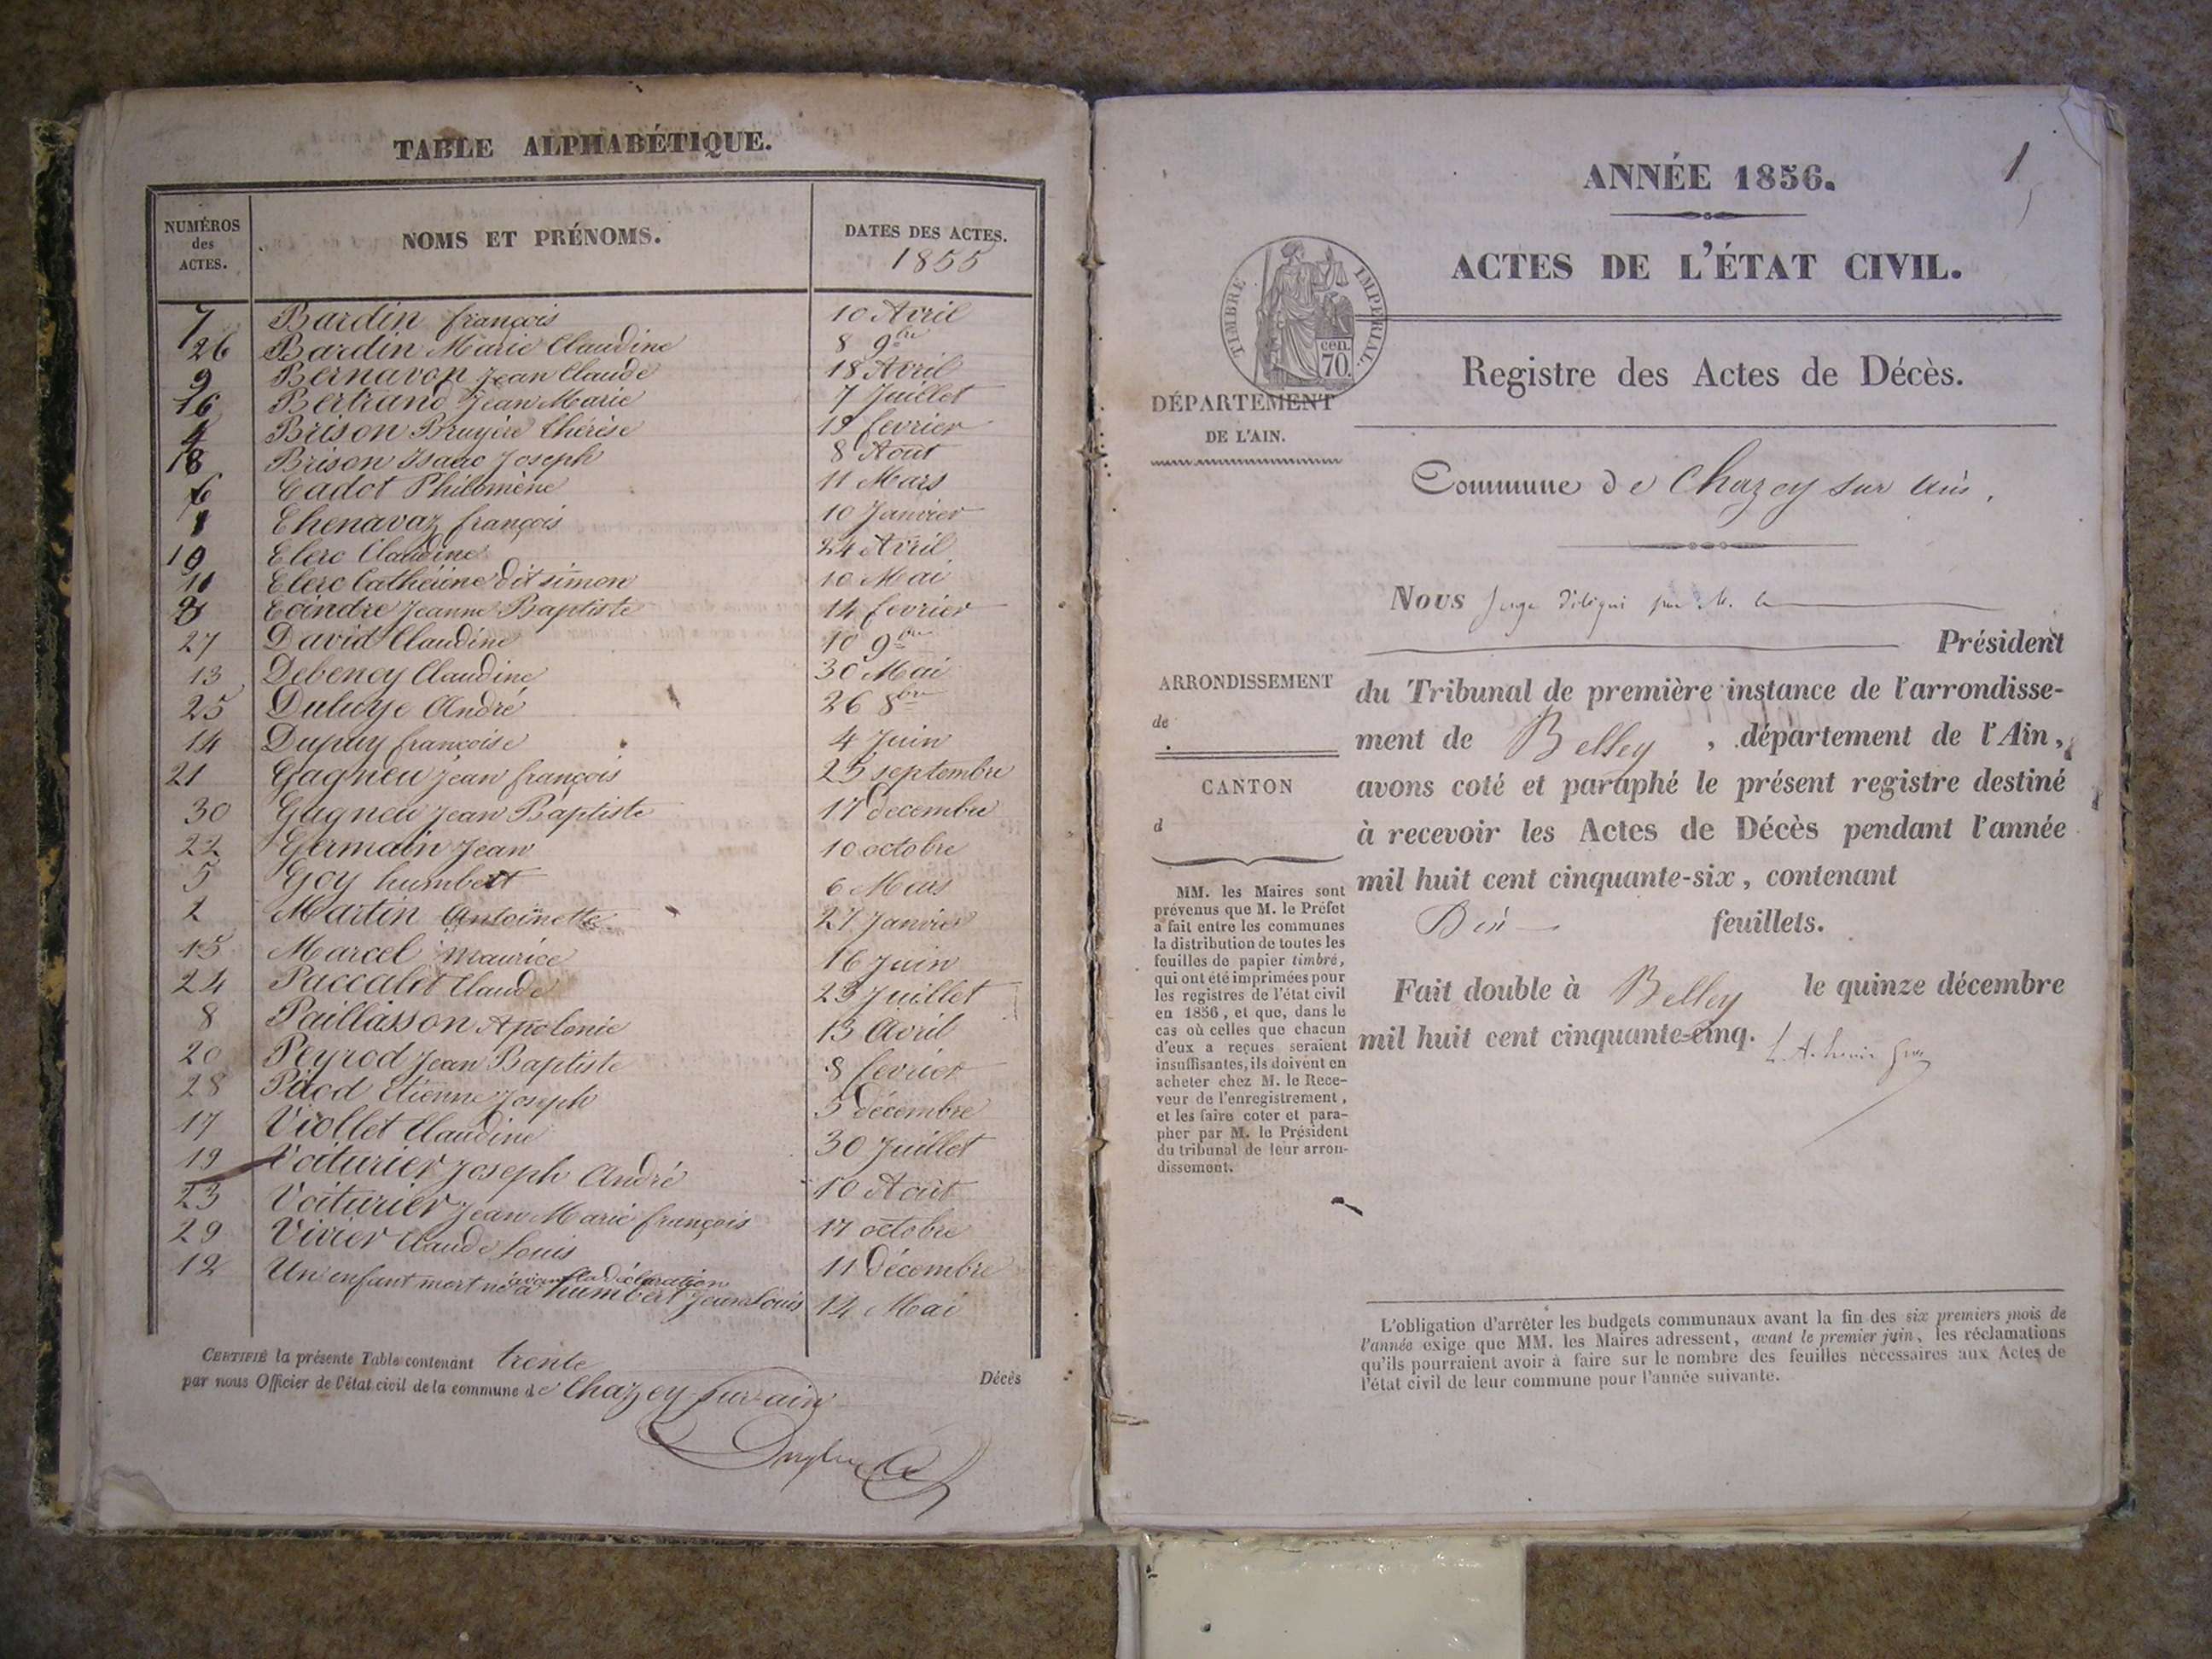 TABLE ALPHABÉTIQUE.
NUMÉROS des ACTES. NOMS ET PRÉNOMS. DATES DES ACTES. 1855
7 Bardin françois 10 Avril
26 Bardin Marie Claudine 8 9bre
9 Bernavon Jean Claude 18 Avril
16 Bertrand Jean Marie 7 Juillet
4 Brison Bruyère thérèse fevrier
18 Brison Isaac Joseph 8 Août
6 Cadot Philomène 11 Mars
1 Chenavaz françois 10 Janvier
10 Clerc Claudine 24 Avril
11 Clerc Cathérine dit simon 10 Mai
Coindre Jeanne Baptiste 14 fevrier
27 David Claudine 10 9bre
13 Debeney Claudine 30 Mai
25 André 26 8bre
14 Dupuy françoise 4 Juin
21 Gagneu Jean françois 25 septembre
30 Gagneu Jean Baptiste 17 décembre
22 Germain Jean 10 octobre
5 Goy humbert 6 Mars
2 Martin Antoinette 27 Janvier
15 Marcel maurice 16 Juin
24 Paccalet Claude 23 Juillet
8 Paillasson Apolonie 13 Avril
20 Peyrod Jean Baptiste 8 fevrier
28 Etienne Joseph 5 décembre
17 Viollet Claudine 30 Juillet
19 Voiturier Joseph André 10 Août
23 Voiturier Jean Marie françois 17 octobre
29 Vivier Claude Louis 11 Décembre
avant la déclaration
12 Un enfant mort né à humbert Jean Louis 14 Mai
CERTIFIÉ la présente Table contenant trente Décès
par nous Officier de l'état civil de la commune de Chazey sur ain
1
ANNÉE 1856.
ACTES DE L'ÉTAT CIVIL.
TIMBRE IMPÉRIAL.
cen.
70.
Registre des Actes de Décès.
DÉPARTEMENT
DE L'AIN.
Commune de Chazey sur ain.
Nous Juge délégué par M. le
Président
ARRONDISSEMENT
de
CANTON
d
du Tribunal de première instance de l'arrondisse-
ment de Belley, département de l'Ain,
avons coté et paraphé le présent registre destiné
à recevoir les Actes de Décès pendant l'année
mil huit cent cinquante-six, contenant
feuillets.
Fait double à Belley le quinze décembre
mil huit cent cinquante-cinq.
MM. les Maires sont
prévenus que M. le Préfet
a fait entre les communes
la distribution de toutes les
feuilles de papier timbré,
qui ont été imprimées pour
les registres de l'état civil
en 1856, et que, dans le
cas où celles que chacun
d'eux a reçues seraient
insuffisantes, ils doivent en
acheter chez M. le Rece-
veur de l'enregistrement,
et les faire coter et para-
pher par M. le Président
du tribunal de leur arron-
dissement.
L'obligation d'arrêter les budgets communaux avant la fin des six premiers mois de
l'année exige que MM. les Maires adressent, avant le premier juin, les réclamations
qu'ils pourraient avoir à faire sur le nombre des feuilles nécessaires aux Actes de
l'état civil de leur commune pour l'année suivante.